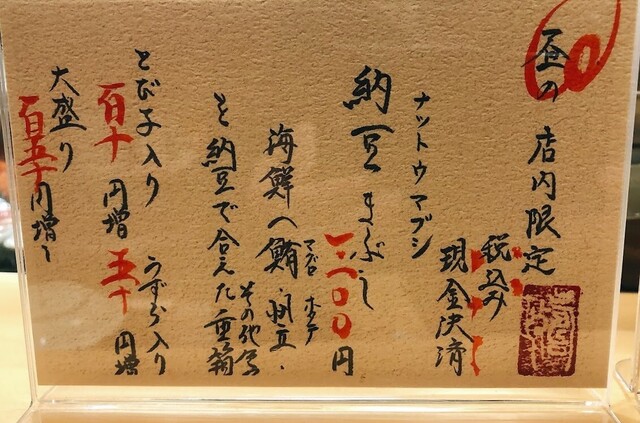 昼の店内限定
税込み
現金決済
ナットウマブシ
納豆まぶし
円
マグロ ホタテ
海鮮(鮪・帆立・その他等
と納豆で合えた重箱
とび子入り
百十円増
うずら入り
五十円増
大盛り
百五十円増し